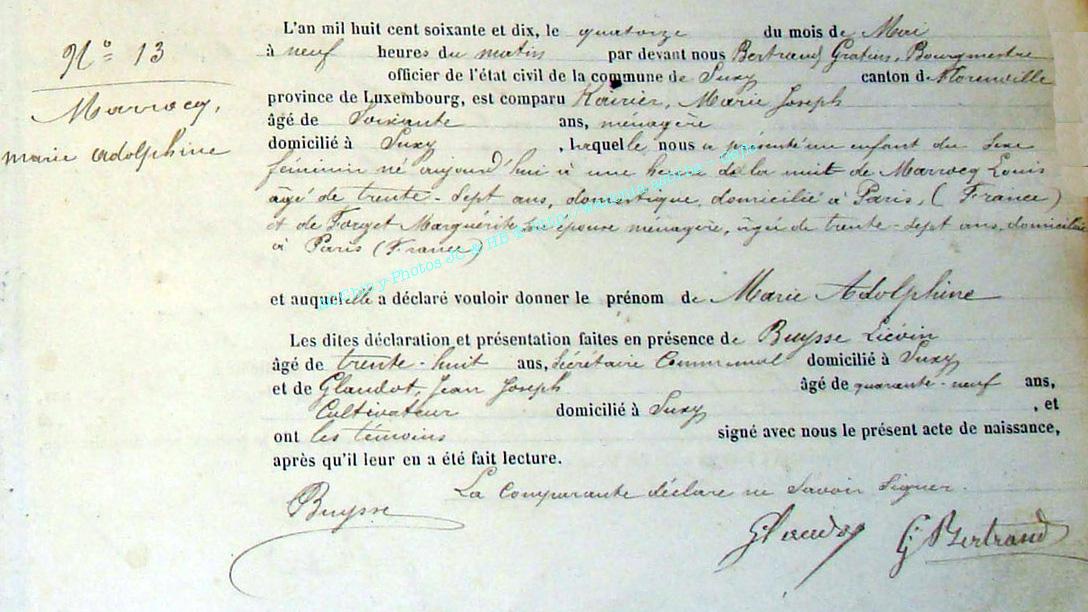 N° 13
Marrocq,
marie adolphine
L'an mil huit cent soixante et dix, le quatorze du mois de Mai
à neuf heures du matin par devant nous Bertrand, Gratien, Bourgmestre
officier de l'état civil de la commune de Suxy canton de Florenville
province de Luxembourg, est comparu Marie Joseph
âgé de Soixante ans, ménagère
domicilié à Suxy , laquelle nous a présenté un enfant du sexe
féminin né aujourd'hui à une heure de la nuit de Marrocq Louis
âgé de trente-sept ans, domestique, domicilié à Paris, (France)
et de Forget Marguérite son épouse ménagère, âgée de trente-sept ans, domiciliée
à Paris (France)
et auquel elle a déclaré vouloir donner le prénom de Marie Adolphine
Les dites déclaration et présentation faites en présence de Buysse Liévin
âgé de trente-huit ans, Sécrétaire Communal domicilié à Suxy
et de Glaudot, Jean Joseph âgé de quarante-neuf ans,
Cultivateur domicilié à Suxy , et
ont les témoins signé avec nous le présent acte de naissance,
après qu'il leur en a été fait lecture.
La Comparante déclare ne Savoir Signer.
Buysse
Glaudot G Bertrand